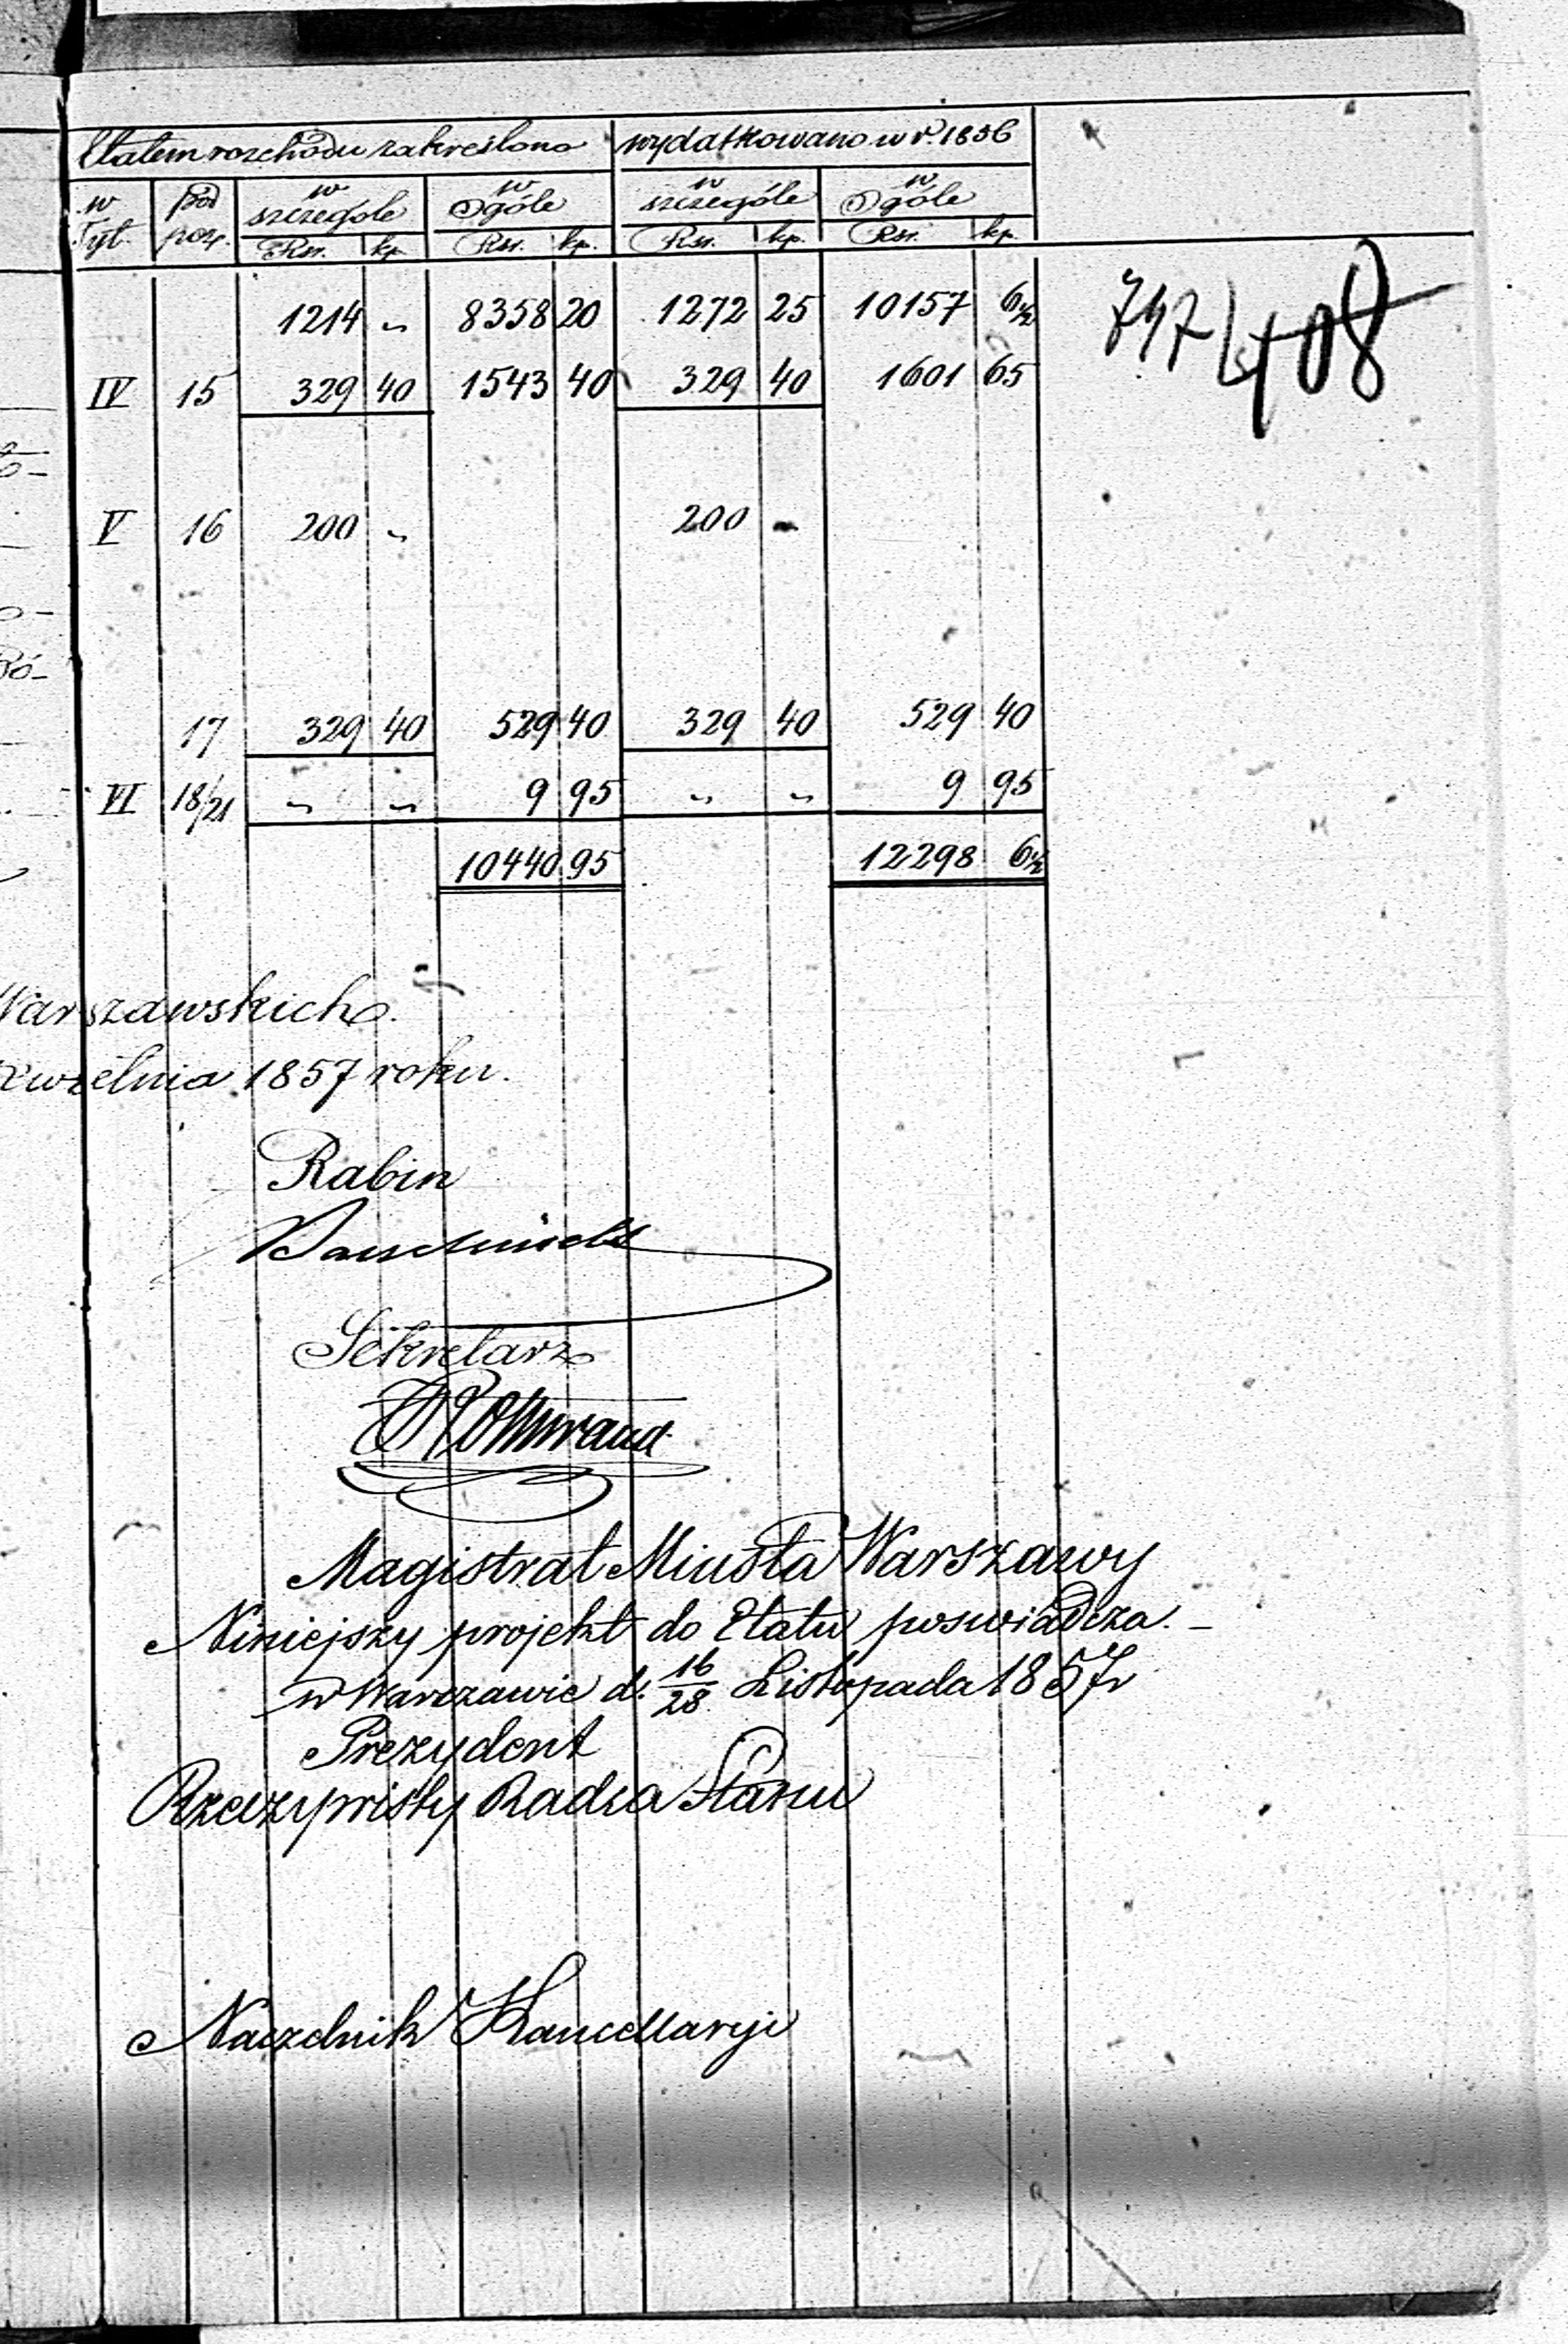 Etatem rozchodu zakreślono wydatkowano w r. 1856
w Tyt. pod poz. w szczególe w Ogóle w szczególe w Ogóle
Rsr. kp. Rsr. kp. Rsr. kp. Rsr. kp.
1214 " 8358 20 1272 25 10157 6½
747 408
IV 15 329 40 1543 40 329 40 1601 65
V 16 200 " 200 "
17 329 40 529 40 329 40 529 40
VI 18/21 " " 9 95 " " 9 95
10440 95 12298 6½
Warszawskich.
kwietnia 1857 roku.
Rabin
Sekretarz
Magistrat Miasta Warszawy
Niniejszy projekt do Etatu poswiadcza. -
w Warszawie d. 16/28 Listopada 1857 r
Prezydent
Rzeczywisty Radca Stanu
Naczelnik Kancellaryi